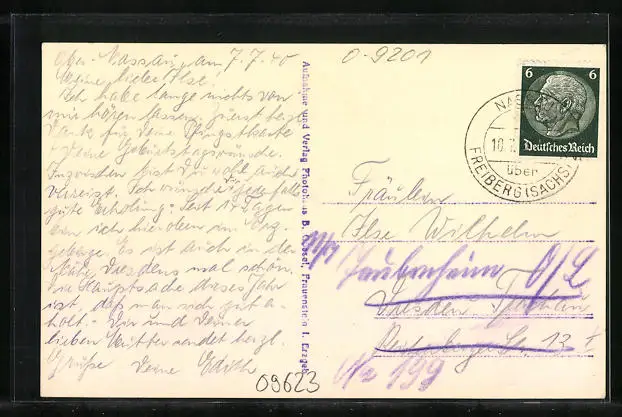 Ober-Nassau, am 7.7.40
Meine liebe Ilse!
Ich habe lange nichts von
mir hören lassen. Zuerst herzl.
Dank für Deine Pfingstkarte
+ Deine Geburtstagswünsche.
Inzwischen bist Du wohl auch
verreist. Ich wünsche jedenfalls
gute Erholung. Seit 14 Tagen
bin ich hier oben im Erz-
gebirge. Es ist auch in der
Nähe Dresdens mal schön.
Die Hauptsache dieses Jahr
ist, daß man sich gut er-
holt. - Dir und Deiner
lieben Mutter sendet herzl.
Grüße Deine Edith
09623
Aufnahme und Verlag Photohaus B. Frauenstein i. Erzgeb.
0-9201
6 6
Deutsches Reich
10.7
über
FREIBERG (SACHS)
Fräulein
Ilse Wilhelm
Taubenheim O/L
Dresden
Str. 13 I
No 199